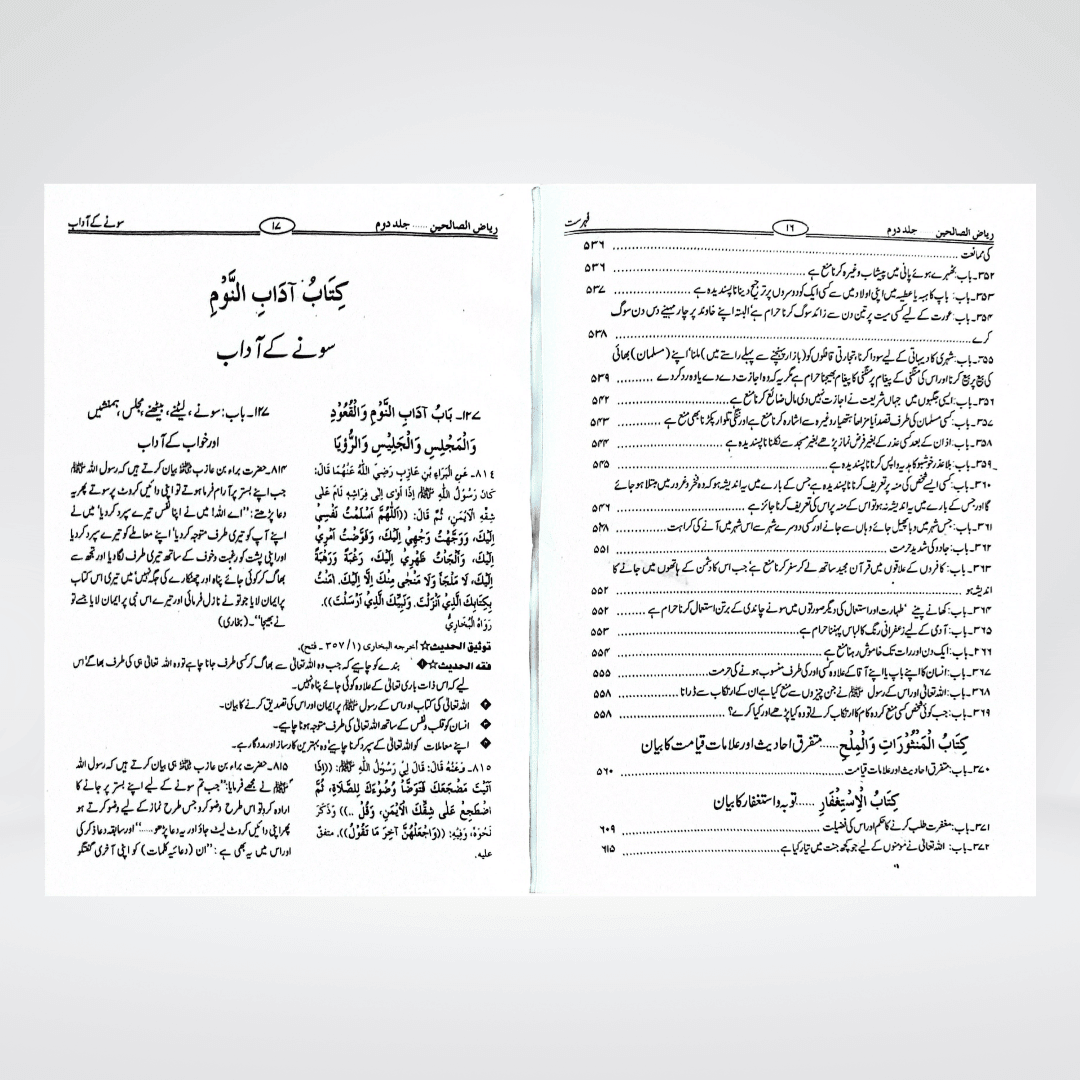 ریاض الصالحین ...... جلد دوم ۱۶ فہرست
کی ممانعت ۵۳۶
۳۵۲۔ باب: ٹھہرے ہوئے پانی میں پیشاب وغیرہ کرنا منع ہے ۵۳۶
۳۵۳۔ باب: باپ کا ہبہ یا عطیہ میں اپنی اولاد میں سے کسی ایک کو دوسروں پر ترجیح دینا ناپسندیدہ ہے ۵۳۷
۳۵۴۔ باب: عورت کے لیے کسی میت پر تین دن سے زائد سوگ کرنا حرام ہے البتہ اپنے خاوند پر چار مہینے دس دن سوگ
کرے ۵۳۸
۳۵۵۔ باب: شہری کا دیہاتی کے لیے سودا کرنا، تجارتی قافلوں کو (بازار پہنچنے سے پہلے راستے میں) ملنا' اپنے (مسلمان) بھائی
کی بیع پر بیع کرنا اور اس کی منگنی کے پیغام پر منگنی کا پیغام بھیجنا حرام ہے مگر یہ کہ وہ اجازت دے دے یا وہ رد کر دے ۵۳۹
۳۵۶۔ باب: ایسی جگہوں میں جہاں شریعت نے اجازت نہیں دی مال ضائع کرنا منع ہے ۵۴۲
۳۵۷۔ باب: کسی مسلمان کی طرف قصداً یا مزاحاً ہتھیار وغیرہ سے اشارہ کرنا منع ہے اور ننگی تلوار پکڑنا بھی منع ہے ۵۴۳
۳۵۸۔ باب: اذان کے بعد کسی عذر کے بغیر فرض نماز پڑھے بغیر مسجد سے نکلنا ناپسندیدہ ہے ۵۴۴
۳۵۹۔ باب: بلا عذر خوشبو کا ہدیہ واپس کرنا ناپسندیدہ ہے ۵۴۵
۳۶۰۔ باب: کسی ایسے شخص کی منہ پر تعریف کرنا ناپسندیدہ ہے جس کے بارے میں یہ اندیشہ ہو کہ وہ فخر و غرور میں مبتلا ہو جائے
گا اور جس کے بارے میں یہ اندیشہ نہ ہو تو اس کے منہ پر اس کی تعریف کرنا جائز ہے ۵۴۶
۳۶۱۔ باب: جس شہر میں وبا پھیل جائے وہاں سے جانے اور کسی دوسرے شہر سے اس شہر میں آنے کی کراہت ۵۴۸
۳۶۲۔ باب: جادو کی شدید حرمت ۵۵۱
۳۶۳۔ باب: کافروں کے علاقوں میں قرآن مجید ساتھ لے کر سفر کرنا منع ہے' جب اس کا دشمن کے ہاتھوں میں جانے کا
اندیشہ ہو ۵۵۲
۳۶۴۔ باب: کھانے پینے ' طہارت اور استعمال کی دیگر صورتوں میں سونے چاندی کے برتن استعمال کرنا حرام ہے ۵۵۲
۳۶۵۔ باب: آدمی کے لیے زعفرانی رنگ کا لباس پہننا حرام ہے ۵۵۳
۳۶۶۔ باب: ایک دن اور رات تک خاموش رہنا منع ہے ۵۵۴
۳۶۷۔ باب: انسان کا اپنے باپ یا اپنے آقا کے علاوہ کسی اور کی طرف منسوب ہونے کی حرمت ۵۵۵
۳۶۸۔ باب: اللہ تعالیٰ اور اس کے رسول ﷺ نے جن چیزوں سے منع کیا ہے ان کے ارتکاب سے ڈرانا ۵۵۸
۳۶۹۔ باب: جب کوئی شخص کسی منع کردہ کام کا ارتکاب کر لے تو وہ کیا پڑھے اور کیا کرے؟ ۵۵۸
كِتَابُ الْمَنْثُوْرَاتِ وَالْمِلْحِ ......متفرق احادیث اور علامات قیامت کا بیان
۳۷۰۔ باب: متفرق احادیث اور علامات قیامت ۵۶۰
كِتَابُ الْاِسْتِغْفَارِ ......توبہ و استغفار کا بیان
۳۷۱۔ باب: مغفرت طلب کرنے کا حکم اور اس کی فضیلت ۶۰۹
۳۷۲۔ باب: اللہ تعالیٰ نے مومنوں کے لیے جو کچھ جنت میں تیار کیا ہے ۶۱۵
ریاض الصالحین ...... جلد دوم ۱۷ سونے کے آداب
كِتَابُ آدَابِ النَّوْمِ
سونے کے آداب
۱۲۷۔ بَابُ آدَابِ النَّوْمِ وَالْقُعُوْدِ
وَالْمَجْلِسِ وَالْجَلِيْسِ وَالرُّؤْيَا
٨١٤۔ عَنِ الْبَرَاءِ بْنِ عَازِبٍ رَضِيَ اللّٰهُ عَنْهُمَا قَالَ:
كَانَ رَسُوْلُ اللّٰهِ ﷺ إِذَا أَوَى إِلَى فِرَاشِهِ نَامَ عَلَى
شِقِّهِ الْأَيْمَنِ، ثُمَّ قَالَ: ((اَللّٰهُمَّ أَسْلَمْتُ نَفْسِيْ
إِلَيْكَ، وَوَجَّهْتُ وَجْهِيْ إِلَيْكَ، وَفَوَّضْتُ أَمْرِيْ
إِلَيْكَ، وَأَلْجَأْتُ ظَهْرِيْ إِلَيْكَ، رَغْبَةً وَرَهْبَةً
إِلَيْكَ، لَا مَلْجَأَ وَلَا مَنْجٰى مِنْكَ إِلَّا إِلَيْكَ. آمَنْتُ
بِكِتَابِكَ الَّذِيْ أَنْزَلْتَ. وَنَبِيِّكَ الَّذِيْ أَرْسَلْتَ)).
رَوَاهُ الْبُخَارِيُّ
۱۲۷۔ باب: سونے، لیٹنے، بیٹھنے، مجلس، ہمنشیں
اور خواب کے آداب
۸۱۴۔ حضرت براء بن عازب ؓ بیان کرتے ہیں کہ رسول اللہ ﷺ
جب اپنے بستر پر آرام فرما ہوتے تو اپنی دائیں کروٹ پر سوتے پھر یہ
دعا پڑھتے: ''اے اللہ! میں نے اپنا نفس تیرے سپرد کر دیا' میں نے
اپنے آپ کو تیری طرف متوجہ کر دیا' اپنے معاملے کو تیرے سپرد کر دیا
اور اپنی پشت کو رغبت و خوف کے ساتھ تیری طرف لگا دیا اور تجھ سے
بھاگ کر کوئی جائے پناہ اور چھٹکارے کی جگہ نہیں' میں تیری اس کتاب
پر ایمان لایا جو تو نے نازل فرمائی اور تیرے اس نبی پر ایمان لایا جسے تو
نے بھیجا''۔ (بخاری)
توثیق الحدیث☆ أخرجه البخاری (۱/ ۳۵۷ ۔ فتح).
فقہ الحدیث☆ ۱ بندے کو چاہیے کہ جب وہ اللہ تعالیٰ سے بھاگ کر کسی طرف جانا چاہے تو وہ اللہ تعالیٰ ہی کی طرف بھاگے' اس
لیے کہ اس ذات باری تعالیٰ کے علاوہ کوئی جائے پناہ نہیں۔
۲ اللہ تعالیٰ کی کتاب اور اس کے رسول ﷺ پر ایمان اور اس کی تصدیق کرنے کا بیان۔
۳ انسان کو قلب و نفس کے ساتھ اللہ تعالیٰ کی طرف متوجہ ہونا چاہیے۔
۴ اپنے معاملات کو اللہ تعالیٰ کے سپرد کرنا چاہیے' وہ بہترین کارساز اور مددگار ہے۔
٨١٥۔ وَعَنْهُ قَالَ: قَالَ لِيْ رَسُوْلُ اللّٰهِ ﷺ: ((إِذَا
أَتَيْتَ مَضْجَعَكَ فَتَوَضَّأْ وُضُوْءَكَ لِلصَّلَاةِ، ثُمَّ
اضْطَجِعْ عَلَى شِقِّكَ الْأَيْمَنِ، وَقُلْ ..)) وَذَكَرَ
نَحْوَهُ، وَفِيْهِ: ((وَاجْعَلْهُنَّ آخِرَ مَا تَقُوْلُ)). متفق
عليه.
۸۱۵۔ حضرت براء بن عازب ؓ ہی بیان کرتے ہیں کہ رسول اللہ
ﷺ نے مجھے فرمایا: ''جب تم سونے کے لیے اپنے بستر پر جانے کا
ارادہ کرو تو اس طرح وضو کرو جس طرح نماز کے لیے وضو کرتے ہو
پھر اپنی دائیں کروٹ لیٹ جاؤ اور یہ دعا پڑھو......'' اور سابقہ دعا ذکر کی
اور اس میں یہ بھی ہے: ''ان (دعائیہ کلمات) کو اپنی آخری گفتگو